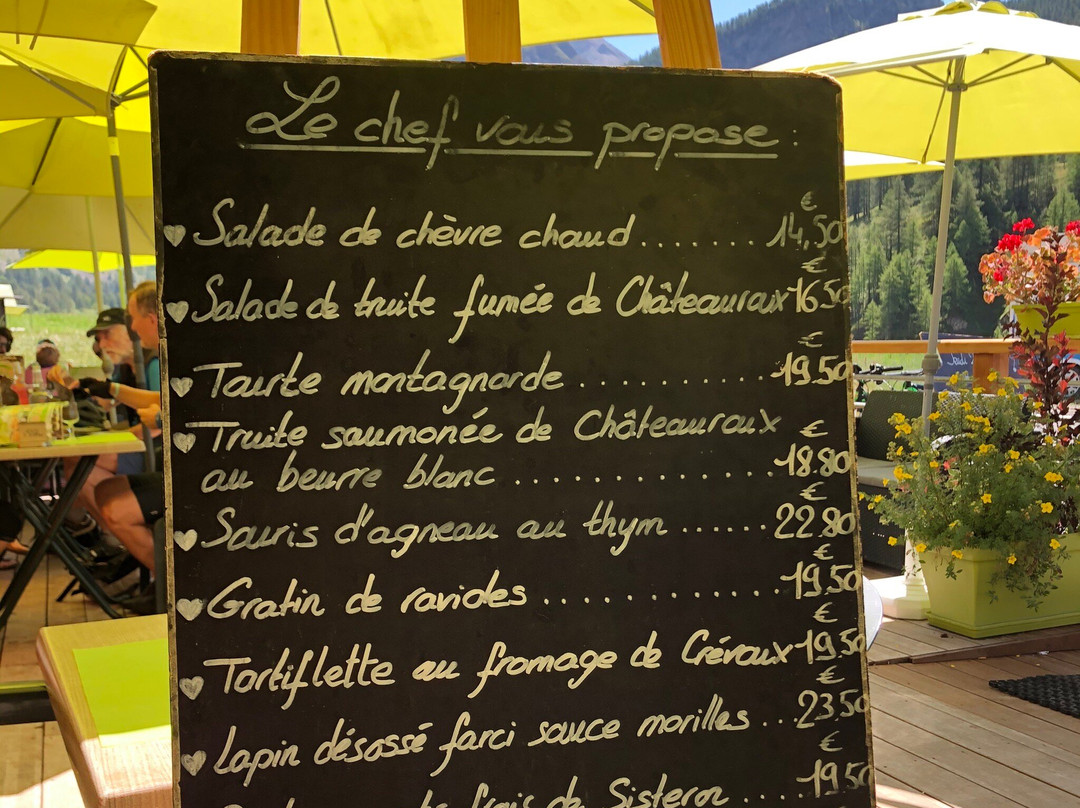 Le chef vous propose :
♥ Salade de chèvre chaud ....... 14,50 €
♥ Salade de truite fumée de Châteauroux 16.50 €
♥ Tourte montagnarde .......... 19.50 €
♥ Truite saumonée de Châteauroux
au beurre blanc ............ 18.80 €
♥ Souris d'agneau au thym ...... 22.80 €
♥ Gratin de ravioles ............. 19.50 €
♥ Tortiflette au fromage de Crévoux 19.50 €
♥ Lapin désossé farci sauce morilles ... 23.50 €
frais de Sisteron .... 19.50 €